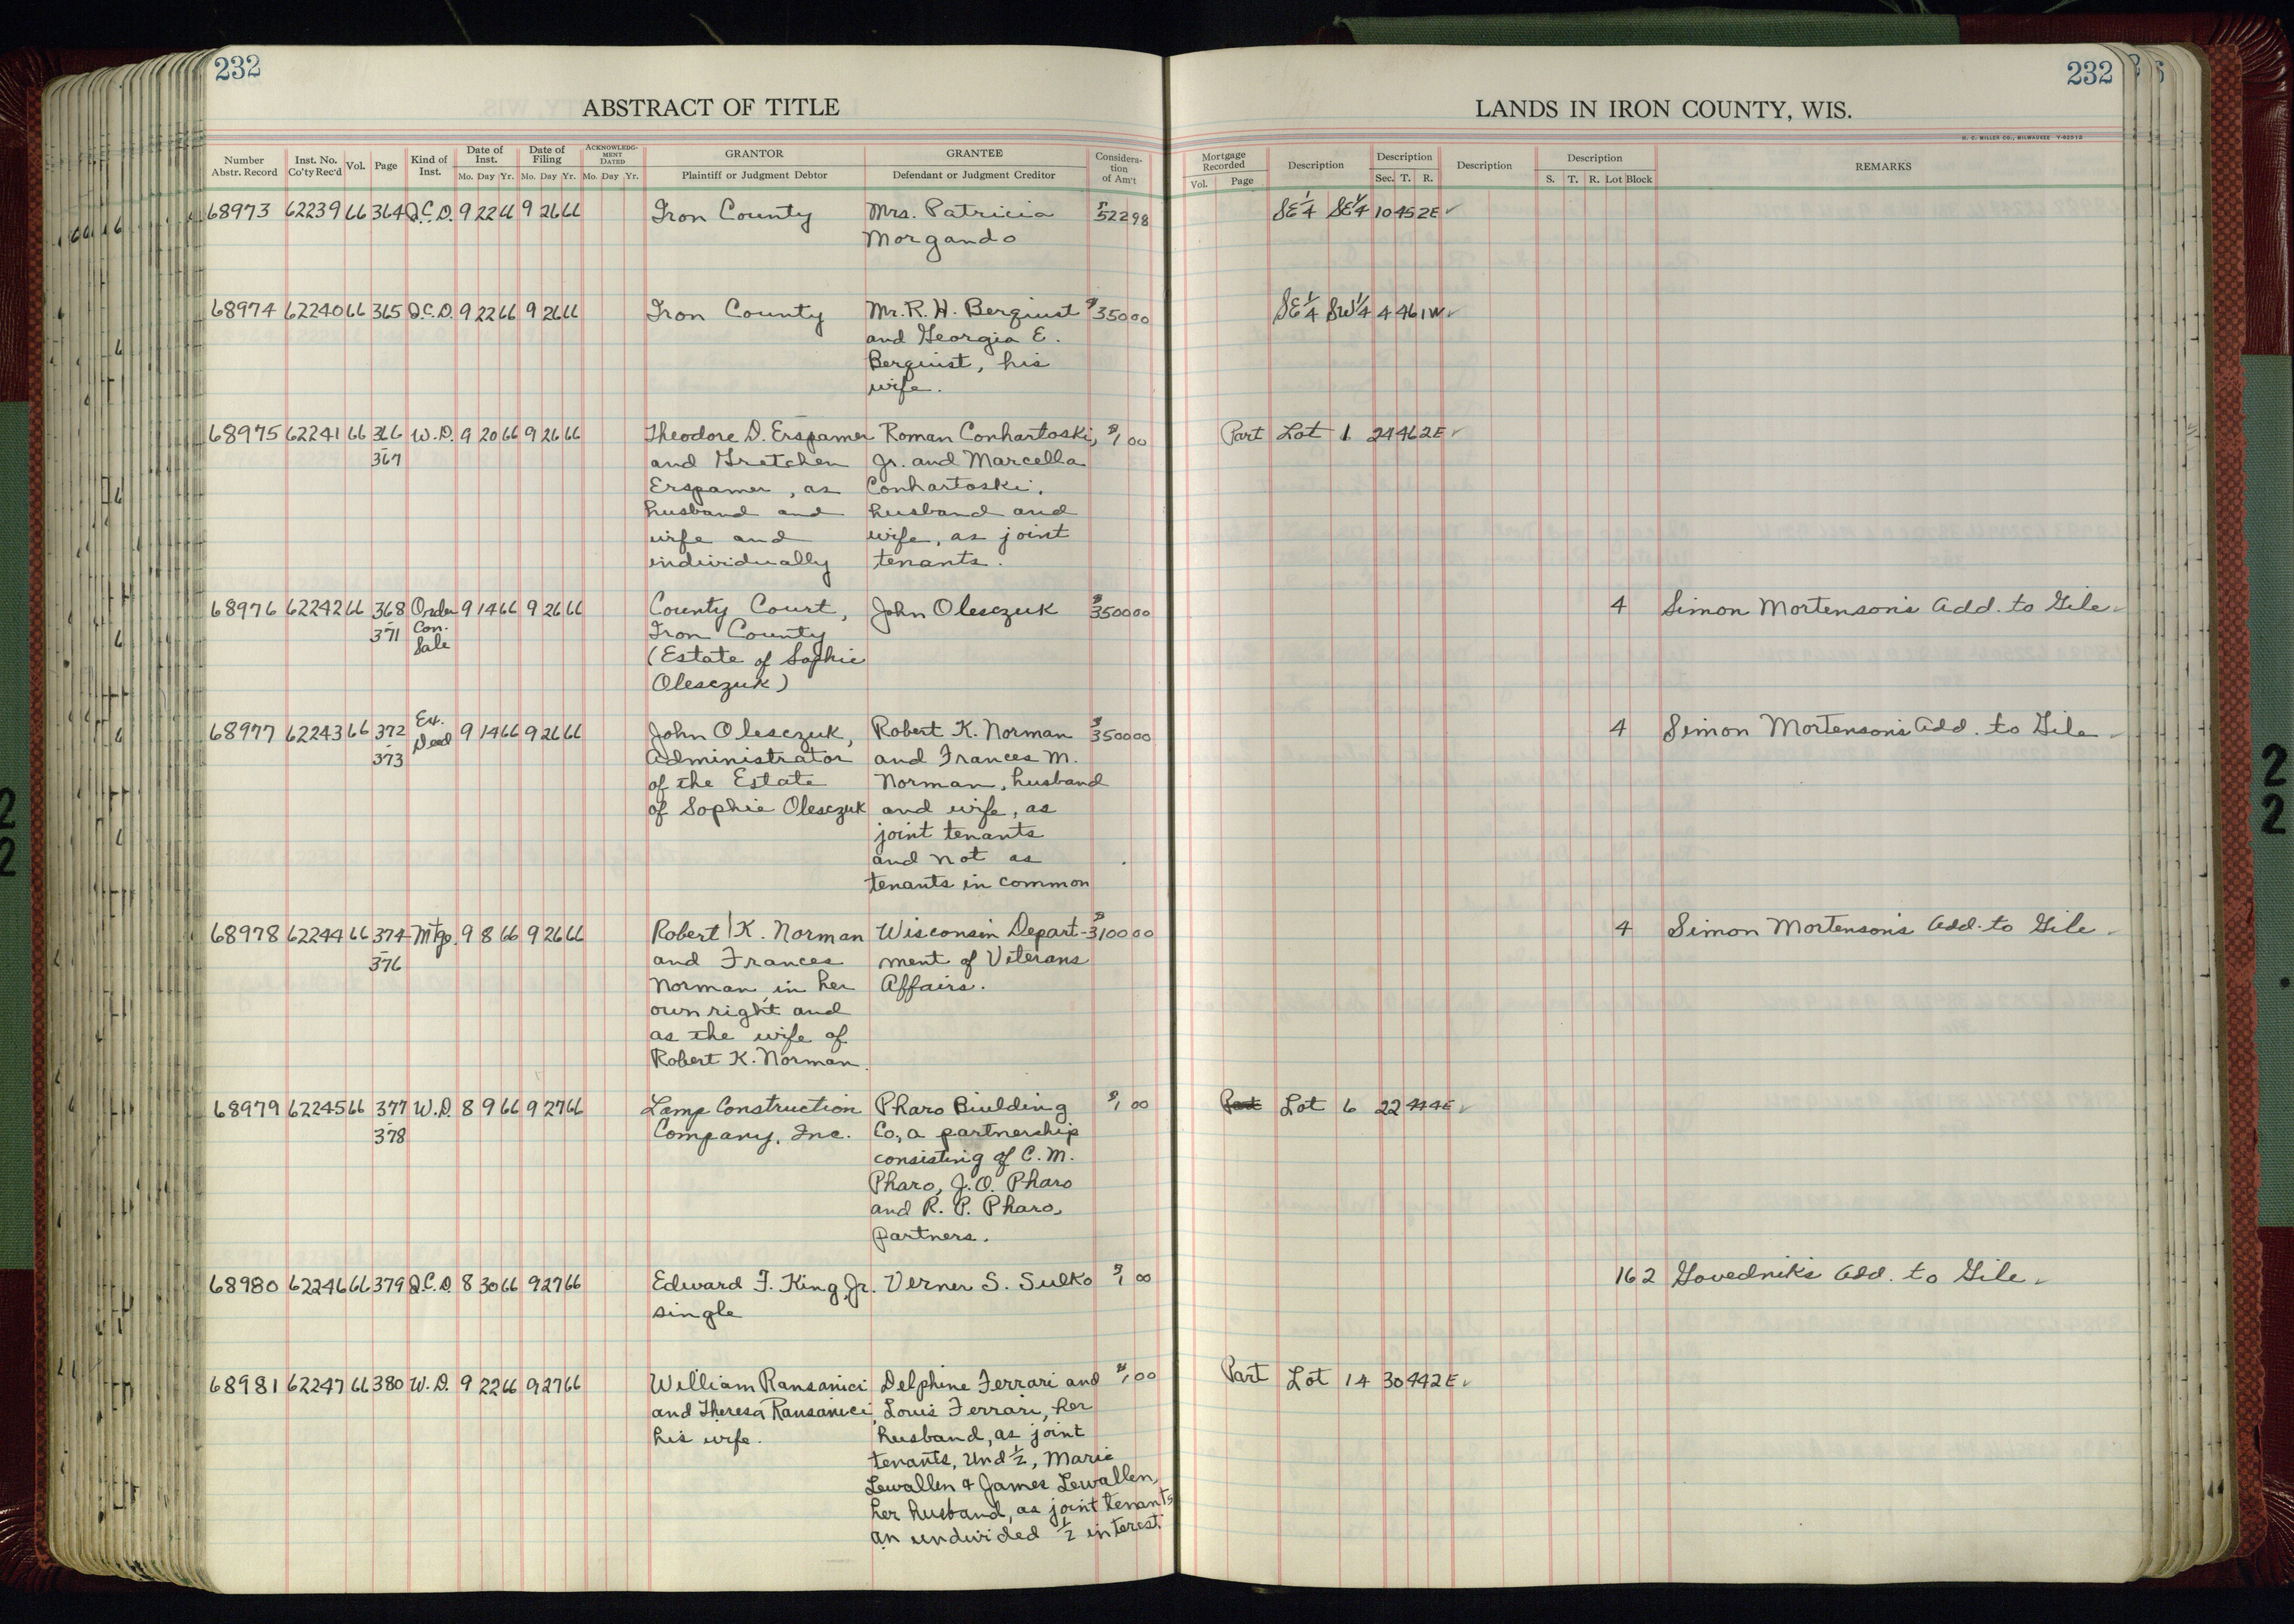 232
232
ABSTRACT OF TITLE
LANDS IN IRON COUNTY, WIS.
H. C. MILLER CO., MILWAUKEE
Number Abstr. Record Inst. No. Co'ty Rec'd Vol. Page Kind of Inst. Date of Inst. Mo. Day Yr. Date of Filing Mo. Day Yr. ACKNOWLEDGMENT DATED Mo. Day Yr. GRANTOR Plaintiff or Judgment Debtor GRANTEE Defendant or Judgment Creditor Consideration of Am't
Mortgage Recorded Vol. Page Description Description Sec. T. R. Description Description S. T. R. Lot Block REMARKS
68973 62239 66 364 Q.C.D. 9 22 66 9 26 66 Iron County Mrs. Patricia $522 98 SE 1/4 SE 1/4 10 45 2E ✓
Morgando
68974 62240 66 365 Q.C.D. 9 22 66 9 26 66 Iron County Mr. R. H. Berquist $350 00 SE 1/4 SW 1/4 4 46 1W ✓
and Georgia E.
Berquist, his
wife.
68975 62241 66 366 W.D. 9 20 66 9 26 66 Theodore D. Erspamer Roman Conhartoski, $1 00 Part Lot 1 24 46 2E ✓
- 367 and Gretchen Jr. and Marcella
Erspamer, as Conhartoski,
husband and husband and
wife and wife, as joint
individually tenants.
68976 62242 66 368 Order 9 14 66 9 26 66 County Court, John Olesczuk $3500 00 4 Simon Mortenson's Add. to Gile ✓
- 371 Con. Iron County
Sale (Estate of Sophie
Olesczuk)
68977 62243 66 372 Ex. Deed 9 14 66 9 26 66 John Olesczuk, Robert K. Norman $3500 00 4 Simon Mortenson's Add. to Gile ✓
- 373 Administrator and Frances M.
of the Estate Norman, husband
of Sophie Olesczuk and wife, as
joint tenants
and not as
tenants in common
68978 62244 66 374 Mtge. 9 8 66 9 26 66 Robert K. Norman Wisconsin Depart- $3100 00 4 Simon Mortenson's Add. to Gile ✓
- 376 and Frances ment of Veterans
Norman, in her Affairs.
own right and
as the wife of
Robert K. Norman.
68979 62245 66 377 W.D. 8 9 66 9 27 66 Lamp Construction Pharo Biulding $1 00 Part Lot 6 22 44 4E ✓
- 378 Company, Inc. Co, a partnership
consisting of C. M.
Pharo, J. O. Pharo
and R. P. Pharo,
partners.
68980 62246 66 379 Q.C.D. 8 30 66 9 27 66 Edward F. King, Jr. Verner S. Sulko $1 00 16 2 Govednik's Add. to Gile ✓
single
68981 62247 66 380 W.D. 9 22 66 9 27 66 William Ransanici Delphine Ferrari and $1 00 Part Lot 14 30 44 2E ✓
and Theresa Ransanici, Louis Ferrari, her
his wife. husband, as joint
tenants, Und 1/2, Marie
Lewallen & James Lewallen,
her husband, as joint tenants
an undivided 1/2 interest